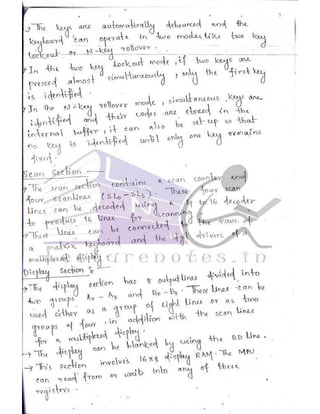 → The keys are automatically debounced and the
keyboard can operate in two modes like two key
lockout or N-key rollover.
→ In the two key lockout mode, if two keys are
pressed almost simultaneously, only the first key
is identified.
→ In the N-key rollover mode, simultaneous keys are
identified and their codes are stored in the
internal buffer, it can also be set up so that
no key is identified until only one key remains
Scan Section :-
→ The scan section contains a scan counter and
four scanlines (SL0 - SL3). These four scan
lines can be decoded using a 4 to 16 decoder
to produce 16 lines for scanning.
→ These lines can be connected the rows of
a matrix keyboard and the digit drivers of a
multiplexed display.
Display Section :
→ The display section has 8 output lines divided into
two groups A0 - A3 and B0 - B3. These lines can be
used either as a group of eight lines or as two
groups of four, in addition with the scan lines
for a multiplexed display.
→ The display can be blanked by using the BD line.
→ This section involves 16x8 display RAM. The MPU
can read from or write into any of these
registers.
lecturenotes.in